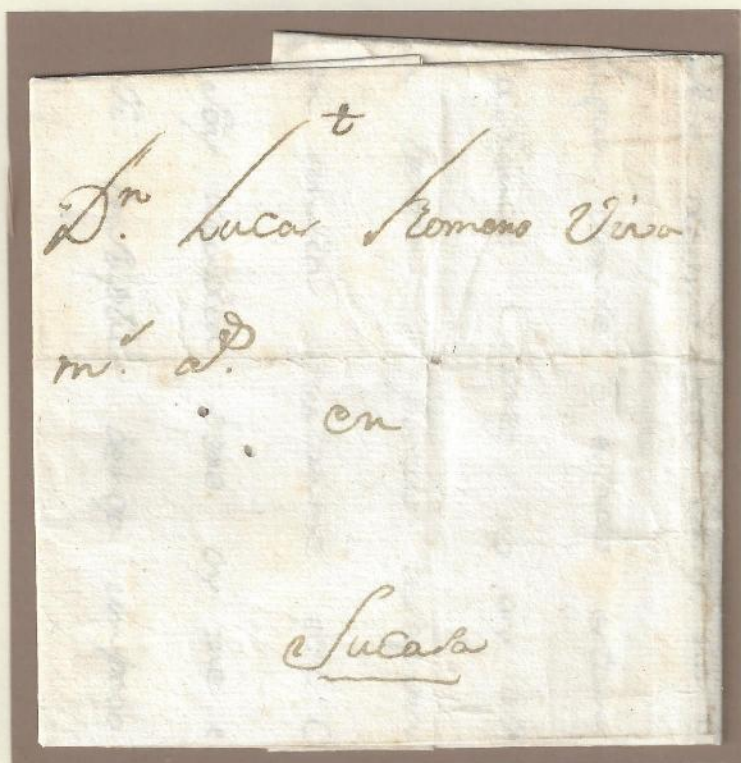 †
Dn. Lucas Romero Viva
ms. as.
en
Sucasa